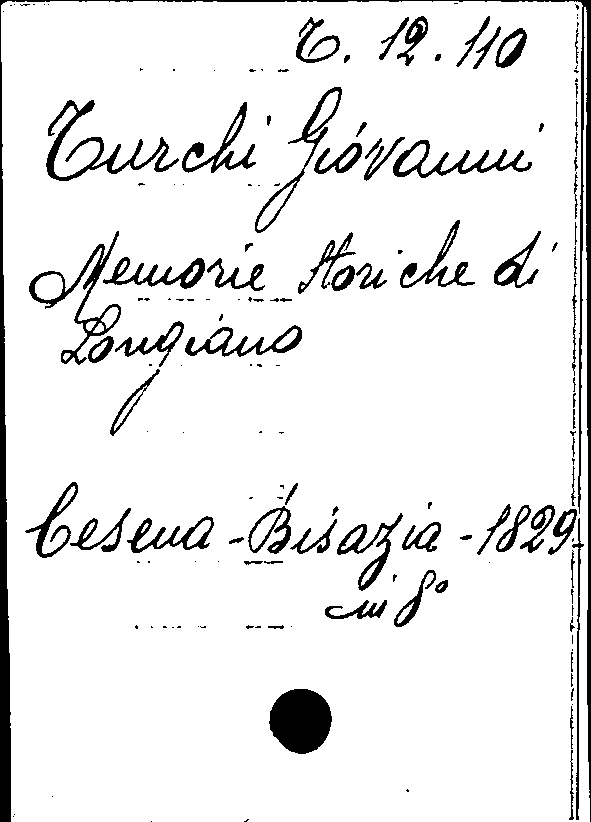 T. 12. 110
Turchi Giovanni
Memorie storiche di
Longiano
Cesena - Bisazia - 1829.
in 8°